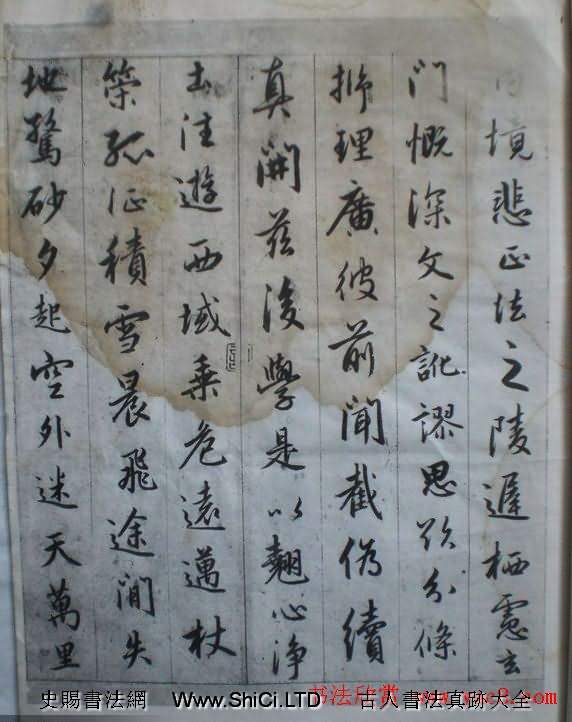 境悲正法之陵遲栖慮玄
門慨深文之訛謬思欲分條
析理廣彼前聞截偽續
真開茲後學是以翹心淨
土往遊西域乘危遠邁杖
策孤征積雪晨飛途間失
地驚砂夕起空外迷天萬里
史賜書法網 www.ShiCi.LTD 古人書法真跡大全
书法欣赏